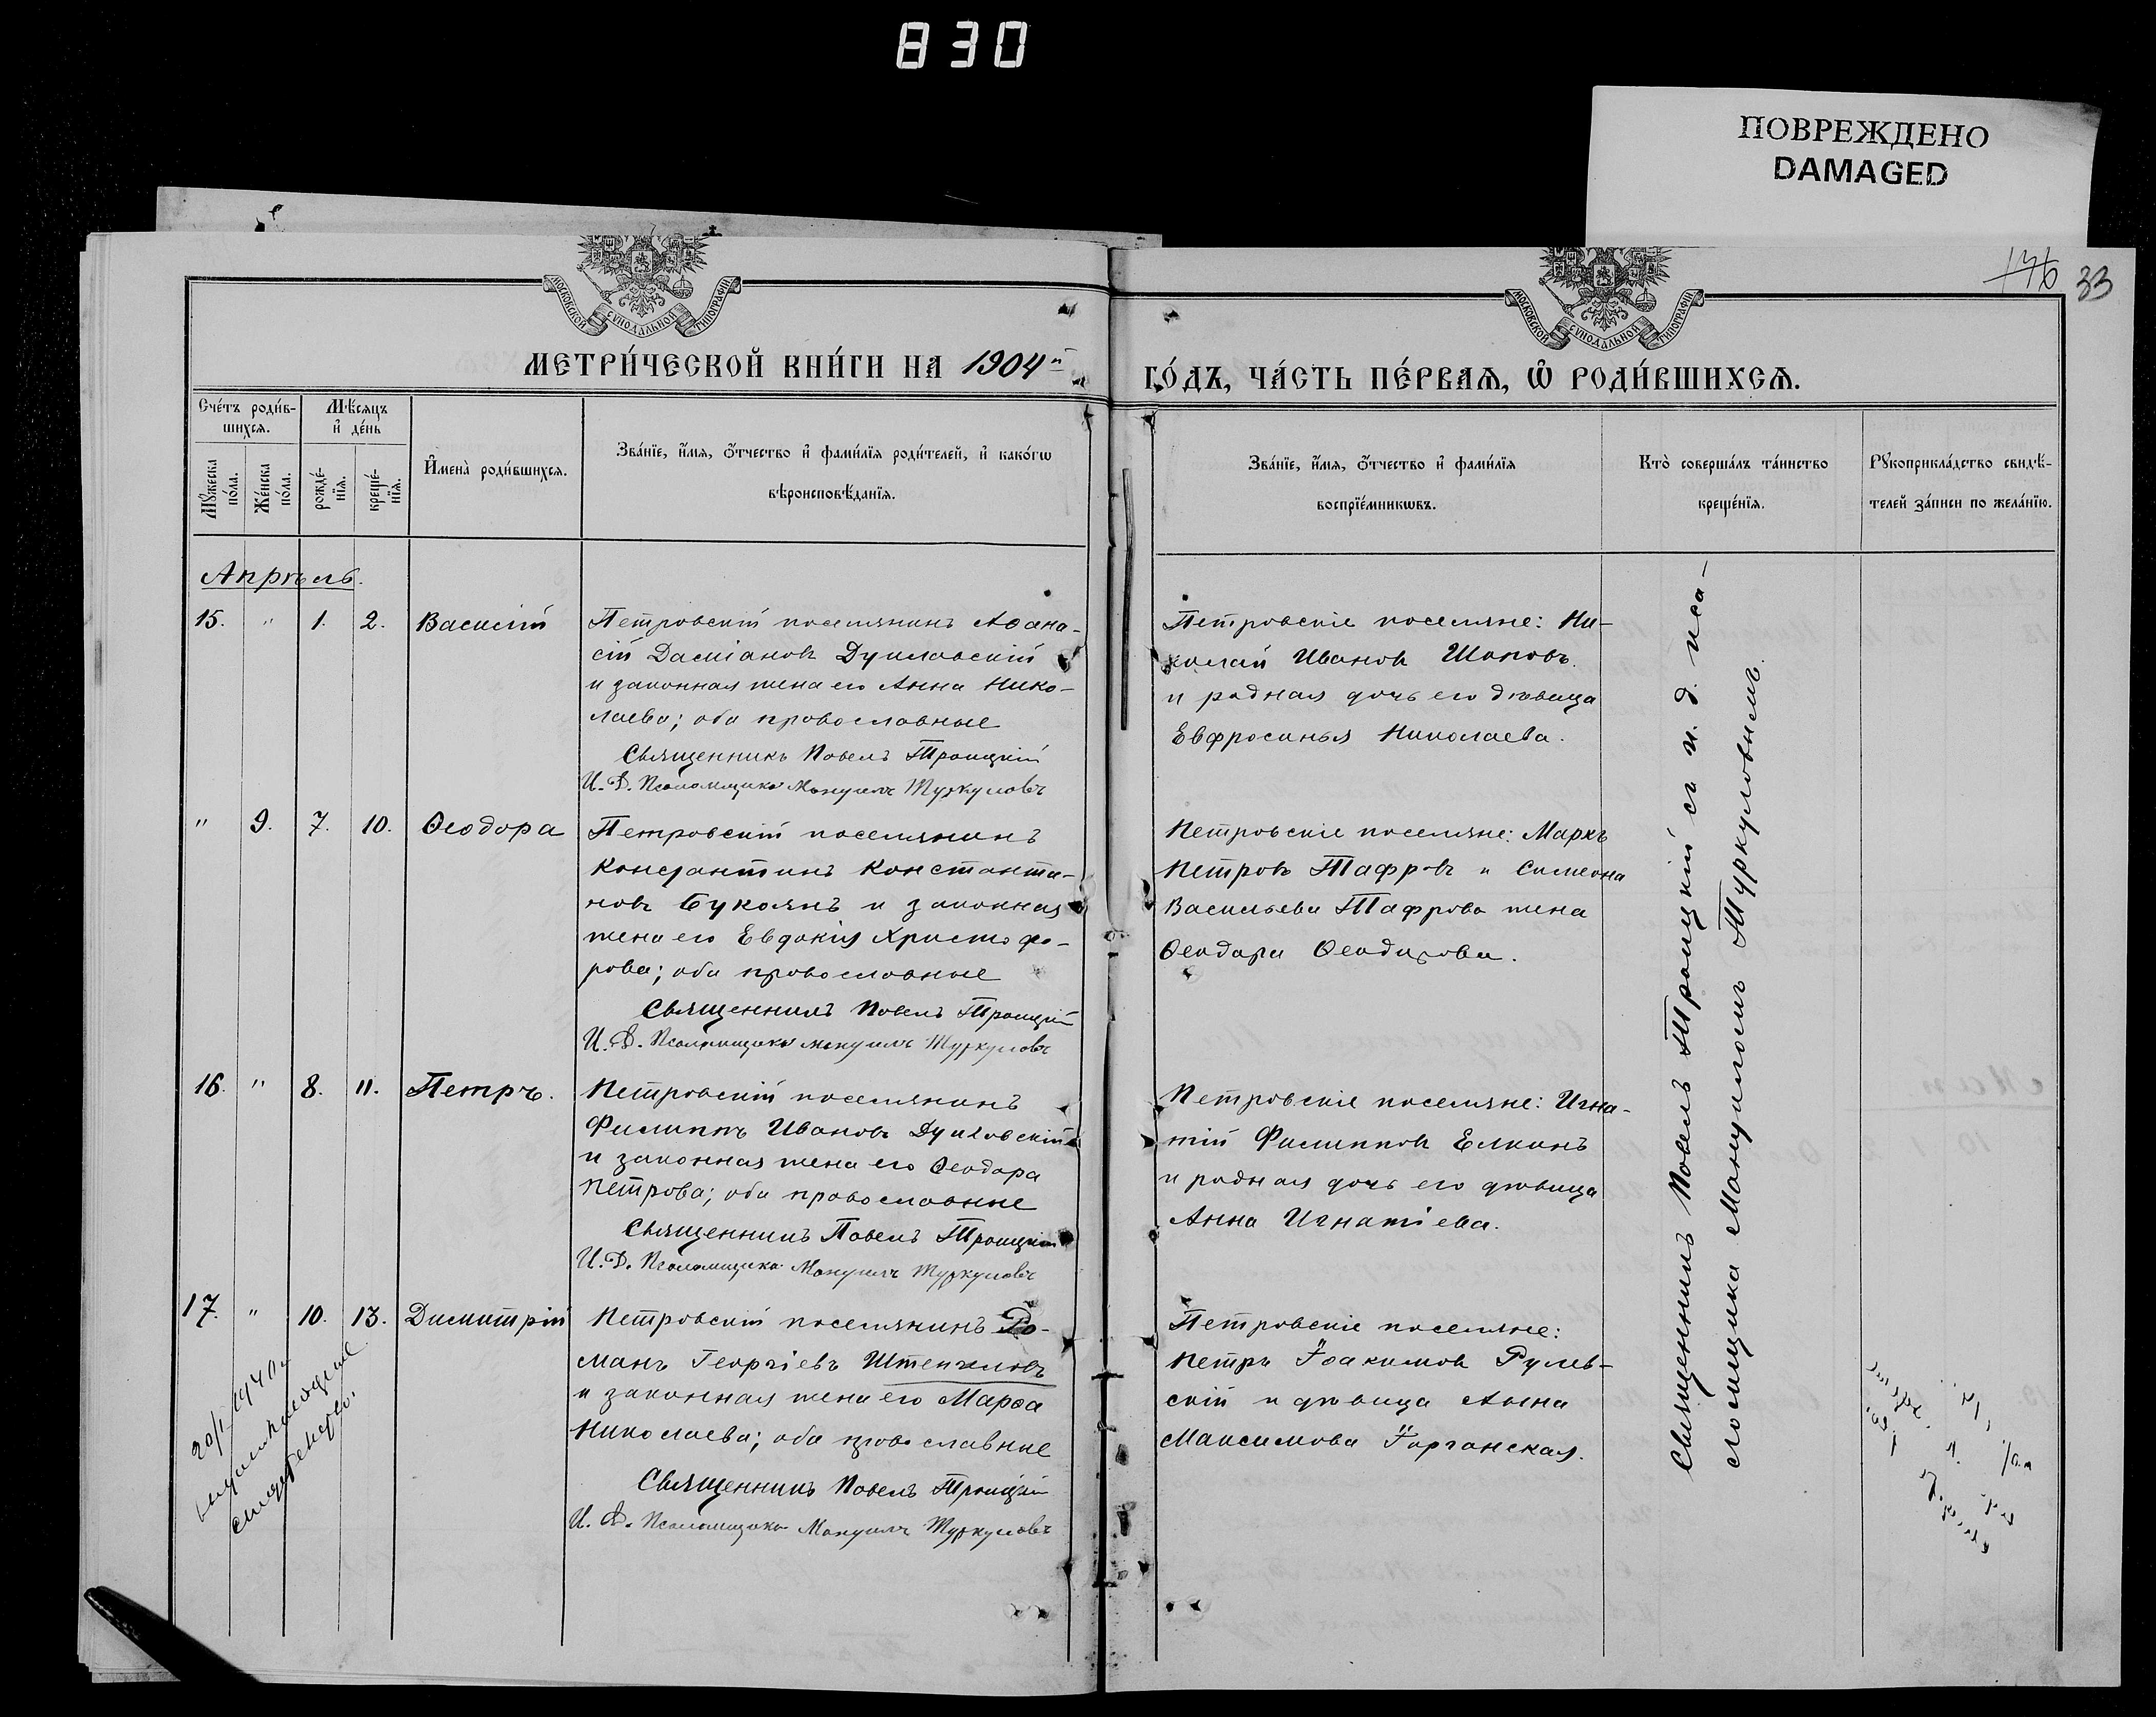 830
ПОВРЕЖДЕНО
DAMAGED
136 33
МОСКОВСКОЙ СѴНОДАЛЬНОЙ ТИПОГРАФІИ
МОСКОВСКОЙ СѴНОДАЛЬНОЙ ТИПОГРАФІИ
МЕТРИ́ЧЕСКОЙ КНИ́ГИ НА 1904й
ГО́ДЪ, ЧА́СТЬ ПЕ́РВАѦ, Ѽ РОДИ́ВШИХСѦ.
Сче́тъ роди́в-
шихсѧ.
Мѣ́сѧцъ
и҆ де́нь
Мꙋ́жеска
по́ла.
Же́нска
по́ла.
рожде́-
нїѧ.
креще́-
нїѧ.
И҆мена̀ роди́вшихсѧ.
Зва́нїе, и҆́мѧ, ѻ҆́тчество и҆ фами́лїѧ роди́телей, и҆ како́гѡ
вѣроисповѣ́данїѧ.
Зва́нїе, и҆́мѧ, ѻ҆́тчество и҆ фами́лїѧ
воспрїе́мникѡвъ.
Кто̀ соверша́лъ та́инство
креще́нїѧ.
Рꙋкоприкла́дство свидѣ́-
телей за́писи по жела́нїю.
Апрѣль.
15. " 1. 2. Василій
Петровскій поселянинъ Аѳана-
сій Даміановъ
и законная жена его Анна Нико-
лаева; оба православные
Священникъ Павелъ Троицкій
И. Д. Псаломщика Мануилъ Туркуловъ
Петровскіе поселяне: Ни-
колай Ивановъ Шоповъ
и родная дочь его дѣвица
Евфросинья Николаева.
" 9. 7. 10. Ѳеодора
Петровскій поселянинъ
Константинъ Константи-
новъ Букоянъ и законная
жена его Евдокія Христофо-
рова; оба православные
Священникъ Павелъ Троицкій
И. Д. Псаломщика Мануилъ Туркуловъ
Петровскіе поселяне: Маркъ
Петровъ Тафровъ и Симеона
Васильева Тафрова жена
Ѳеодора Ѳеодорова.
16. " 8. 11. Петръ.
Петровскій поселянинъ
Филиппъ Ивановъ
и законная жена его Ѳеодора
Петрова; оба православные
Священникъ Павелъ Троицкій
И. Д. Псаломщика Мануилъ Туркуловъ
Петровскіе поселяне: Игна-
тій Филипповъ Елкинъ
и родная дочь его дѣвица
Анна Игнатіева.
17. " 10. 13. Димитрій
Петровскій поселянинъ Ро-
манъ Георгіевъ Штенгеловъ
и законная жена его Марѳа
Николаева; оба православные
Священникъ Павелъ Троицкій
И. Д. Псаломщика Мануилъ Туркуловъ
Петровскіе поселяне:
Петръ Іоакимовъ Рулев-
скій и дѣвица Анна
Максимова Горганская.
20/I 1940
Священникъ Павелъ Троицкій съ и. д. пса-
ломщика Мануиломъ Туркуловымъ.